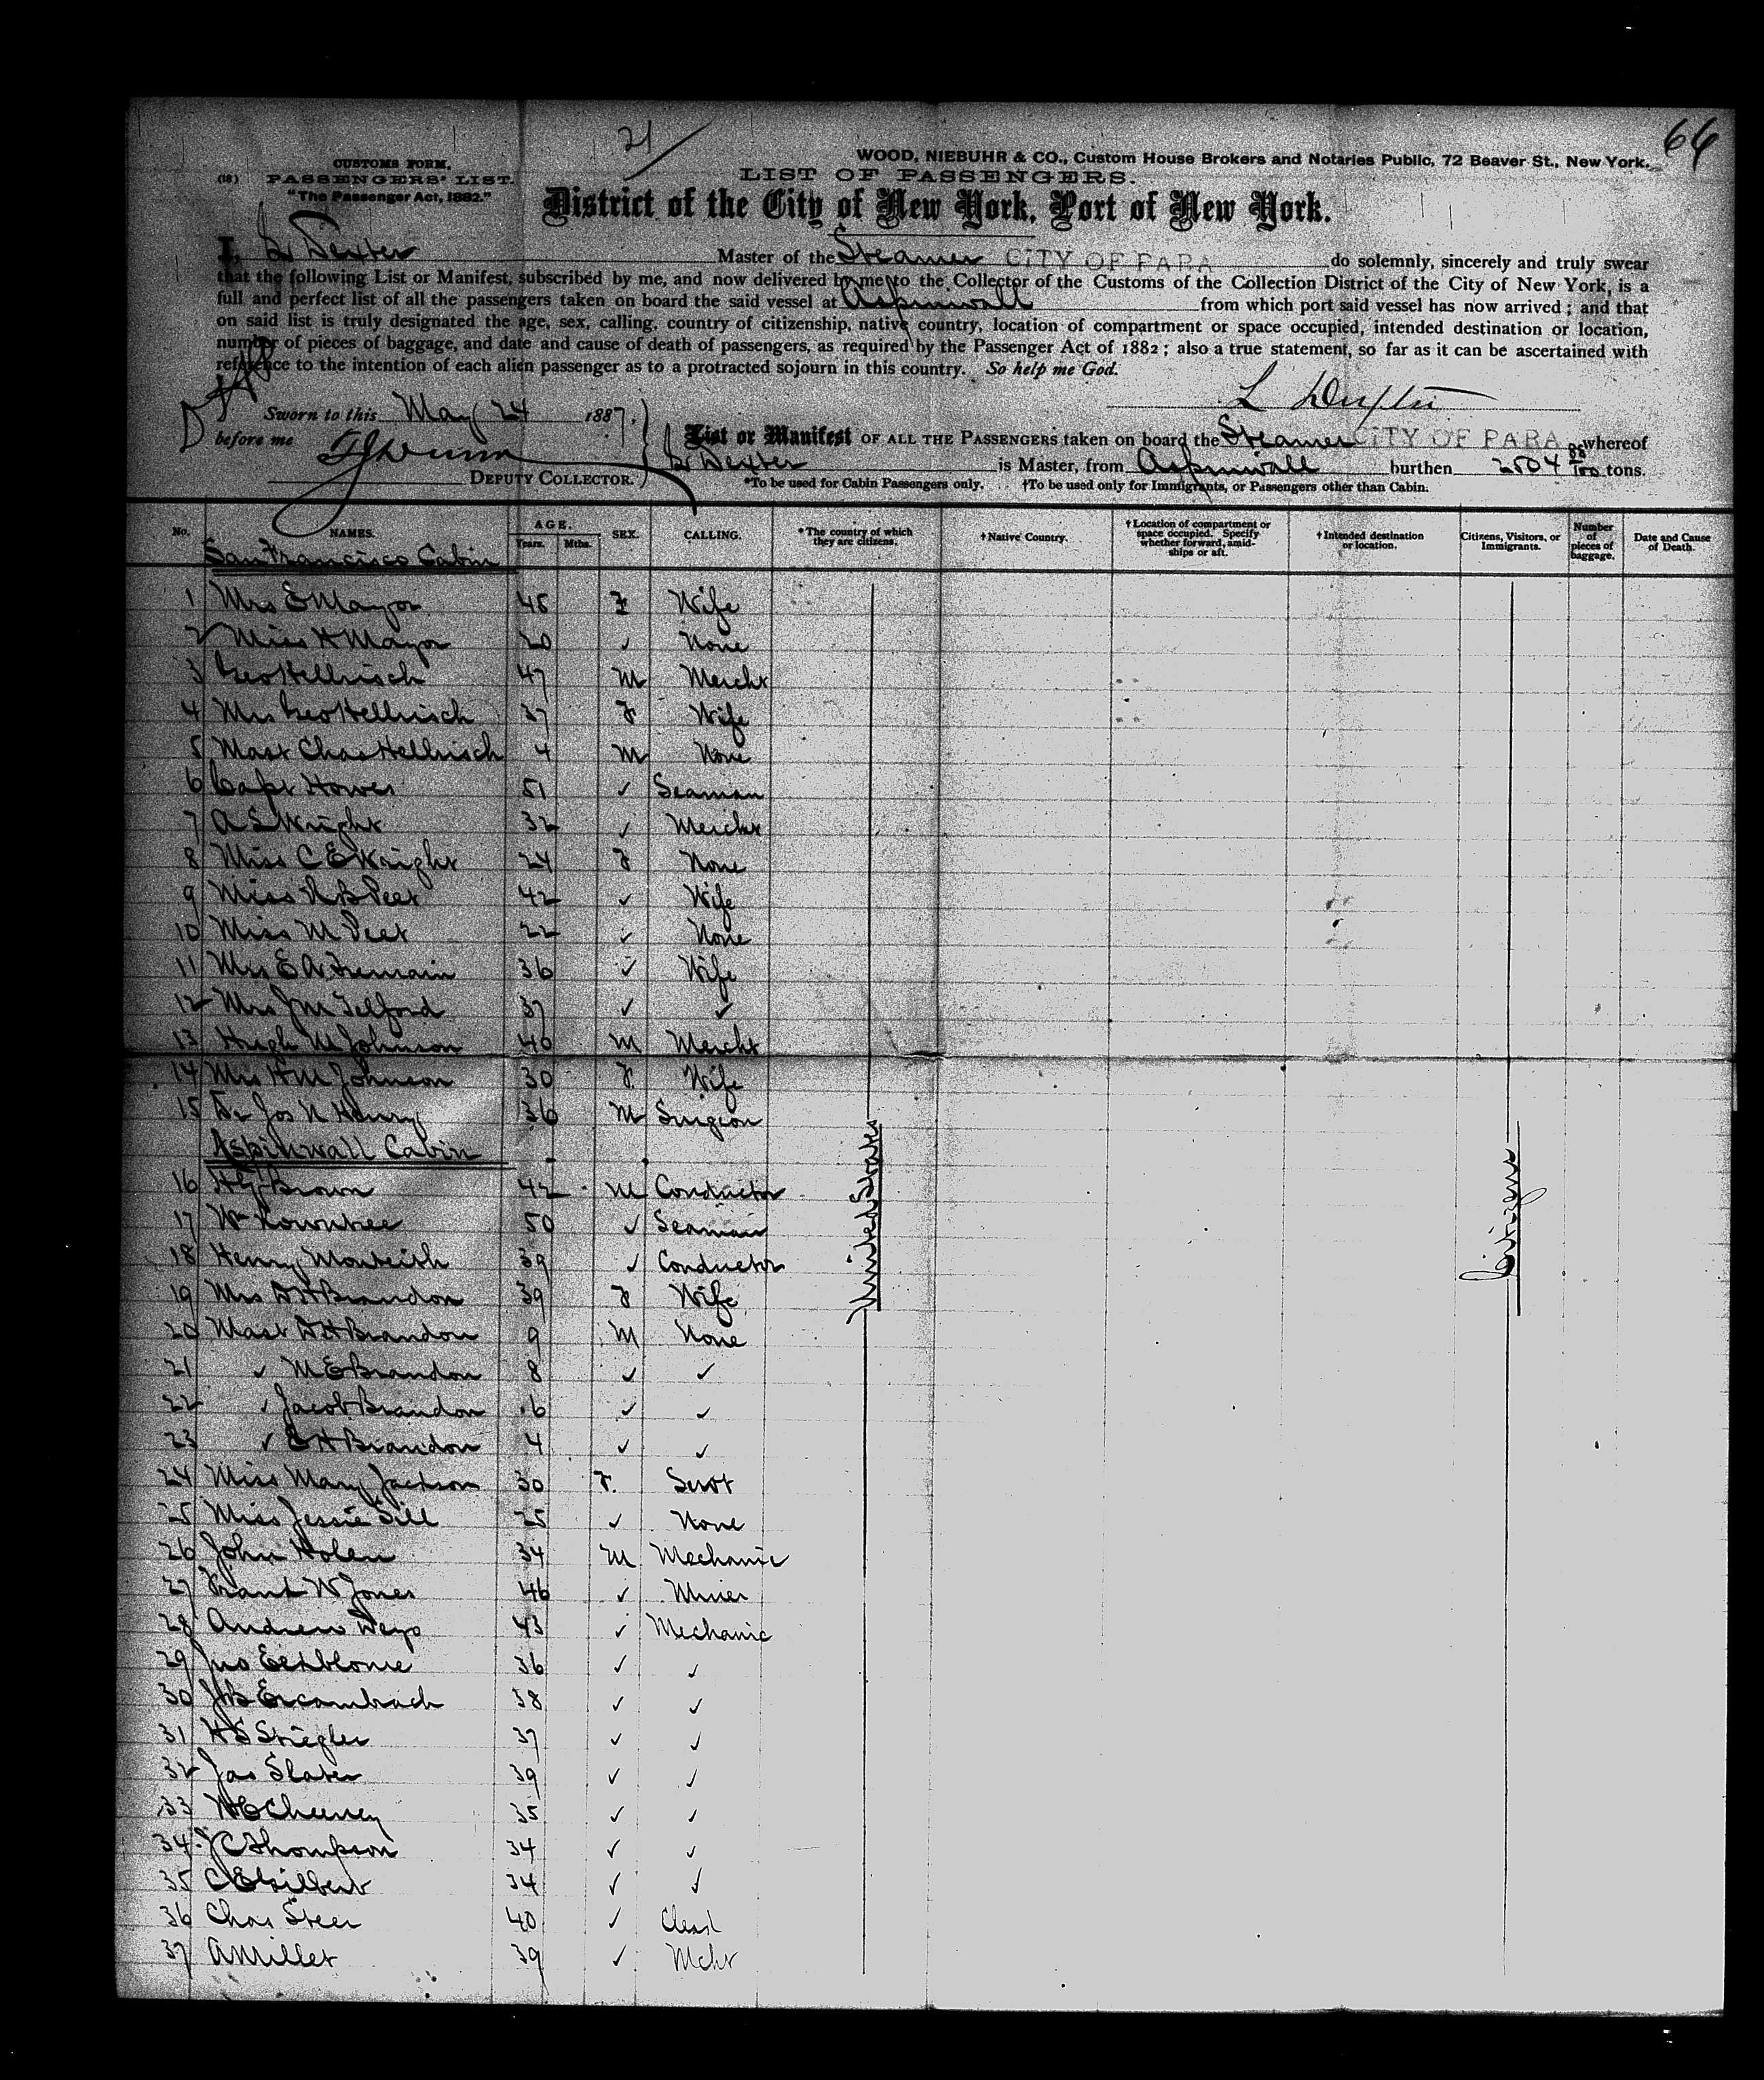 21
66
WOOD, NIEBUHR & CO., Custom House Brokers and Notaries Public, 72 Beaver St., New York.
CUSTOMS FORM.
(18) PASSENGERS' LIST.
"The Passenger Act, 1882."
LIST OF PASSENGERS.
District of the City of New York, Port of New York.
I, L Dexter Master of the Steamer CITY OF PARA do solemnly, sincerely and truly swear
that the following List or Manifest, subscribed by me, and now delivered by me to the Collector of the Customs of the Collection District of the City of New York, is a
full and perfect list of all the passengers taken on board the said vessel at Aspinwall from which port said vessel has now arrived; and that
on said list is truly designated the age, sex, calling, country of citizenship, native country, location of compartment or space occupied, intended destination or location,
number of pieces of baggage, and date and cause of death of passengers, as required by the Passenger Act of 1882; also a true statement, so far as it can be ascertained with
reference to the intention of each alien passenger as to a protracted sojourn in this country. So help me God.
L Dexter
Sworn to this May 24 1887.
before me
DEPUTY COLLECTOR.
List or Manifest OF ALL THE PASSENGERS taken on board the Steamer CITY OF PARA whereof
L Dexter is Master, from Aspinwall burthen 2504 88/100 tons.
*To be used for Cabin Passengers only. †To be used only for Immigrants, or Passengers other than Cabin.
No. NAMES. AGE. Years. Mths. SEX. CALLING. *The country of which they are citizens. †Native Country. †Location of compartment or space occupied. Specify whether forward, amidships or aft. †Intended destination or location. Citizens, Visitors, or Immigrants. Number of pieces of baggage. Date and Cause of Death.
San Francisco Cabin
1 Mrs E Mayor 45 F Wife
2 Miss H Mayor 20 ✓ None
3 Geo Hellrisch 47 M Mercht
4 Mrs Geo Hellrisch 37 F Wife
5 Mast Chas Hellrisch 4 M None
6 Capt Howes 51 ✓ Seaman
7 A S Wright 32 ✓ Mercht
8 Miss C E Wright 24 F None
9 Miss N B Peet 42 ✓ Wife
10 Miss M Peet 22 ✓ None
11 Mrs E A Tremain 36 ✓ Wife
12 Mrs J M Telford 37 ✓ ✓
13 Hugh M Johnson 40 M Mercht
14 Mrs H M Johnson 30 F. Wife
15 Dr Jos N Henry 36 M Surgeon
Aspinwall Cabin
16 H G Brown 42 M Conductor
17 Wm Rowntree 50 ✓ Seaman
18 Henry Monteith 39 ✓ Conductor
19 Mrs D H Brandon 39 F Wife
20 Mast D H Brandon 9 M None
21 ✓ M E Brandon 8 ✓ ✓
22 ✓ Jacob Brandon 6 ✓ ✓
23 ✓ E H Brandon 4 ✓ ✓
24 Miss Mary Jackson 30 F. Servt
25 Miss Jessie Sill 25 ✓ None
26 John Holen 34 M Mechanic
27 Frank W Jones 46 ✓ Miner
28 Andrew Weys 43 ✓ Mechanic
29 Jno 36 ✓ ✓
30 J B Escambach 38 ✓ ✓
31 H S Stiegler 37 ✓ ✓
32 Jas Slater 39 ✓ ✓
33 W C Cheeney 35 ✓ ✓
34 J C Thompson 34 ✓ ✓
35 C E Gilbert 34 ✓ ✓
36 Chas Steer 40 ✓ Clerk
37 A Miller 39 ✓ Mcht
United States
Citizens